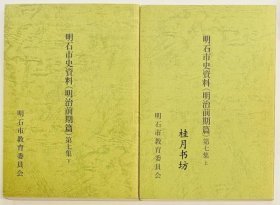 明石市史資料(明治前期篇)第七集上
桂月书坊
明石市教育委員会
明石市史資料(明治前期篇)第七集下
明石市教育委員会